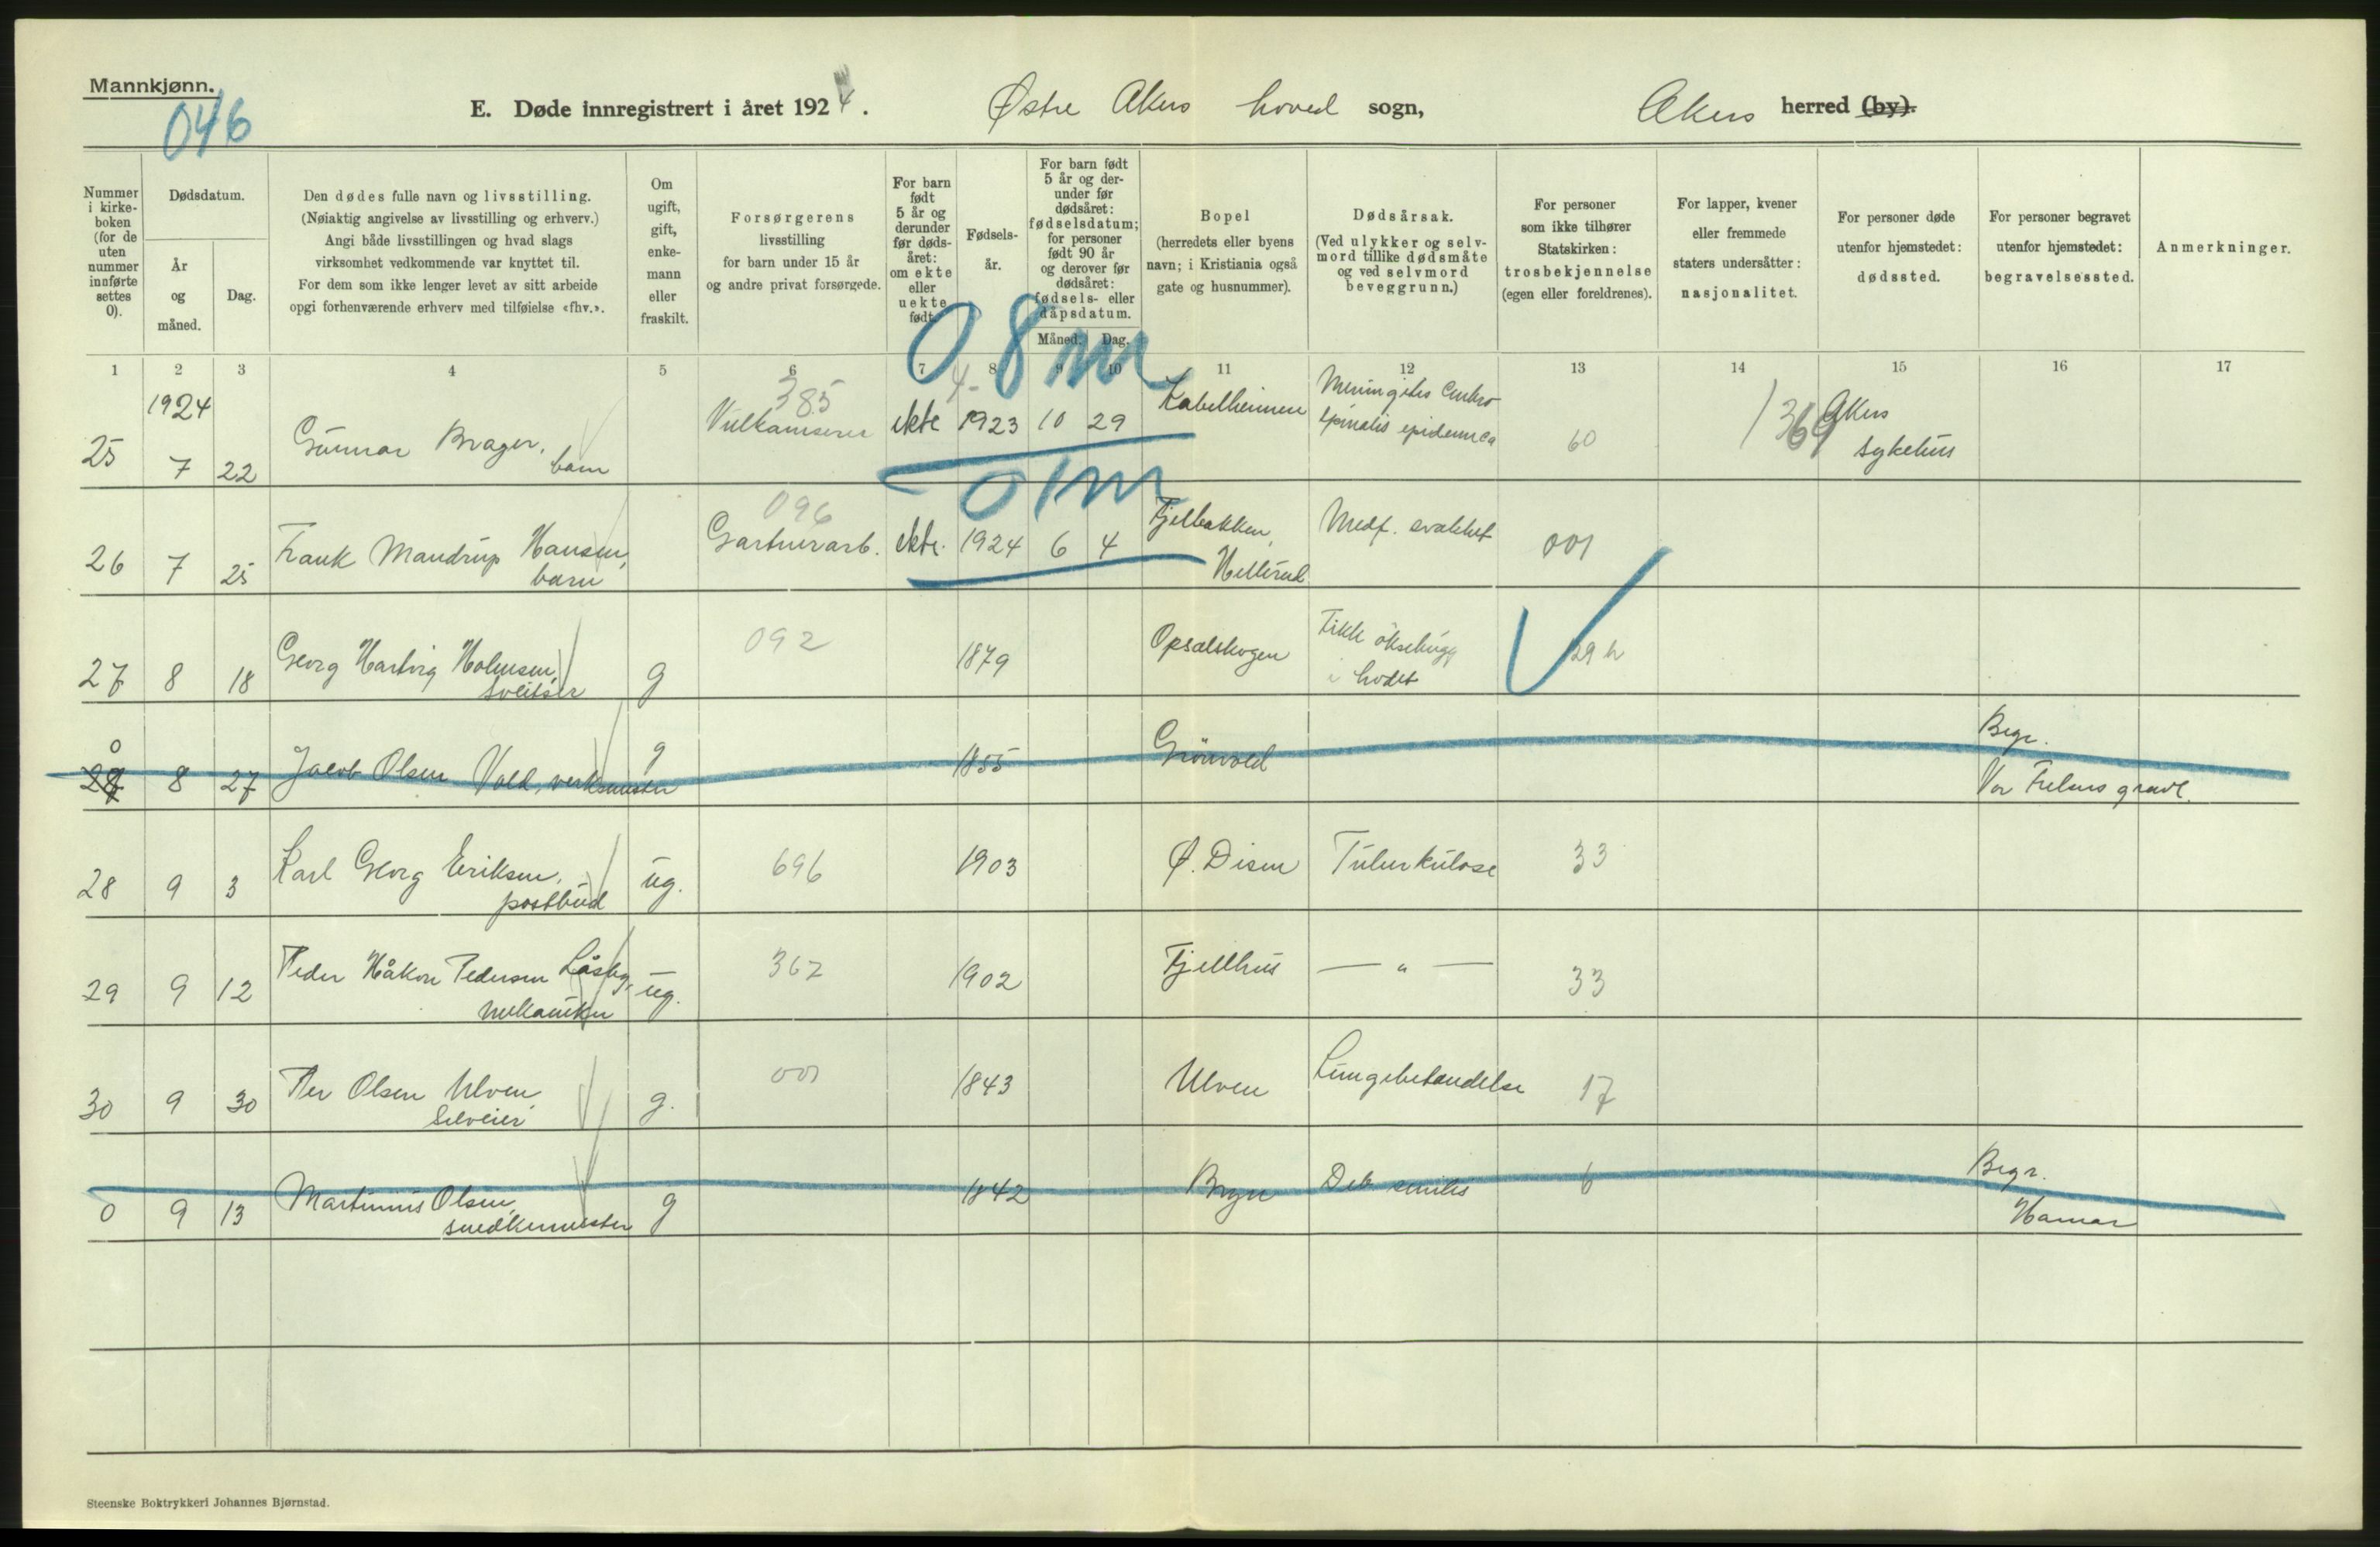 Mannkjønn.
046
E. Døde innregistrert i året 1924. Østre Akers hoved sogn, Akers herred (by).
Nummer i kirke-boken (for de uten nummer innførte settes 0).
Dødsdatum.
År og måned.
Dag.
Den dødes fulle navn og livsstilling.
(Nøiaktig angivelse av livsstilling og erhverv.)
Angi både livsstillingen og hvad slags
virksomhet vedkommende var knyttet til.
For dem som ikke lenger levet av sitt arbeide
opgi forhenværende erhverv med tilføielse «fhv.».
Om ugift, gift, enke-mann eller fraskilt.
Forsørgerens
livsstilling
for barn under 15 år
og andre privat forsørgede.
For barn født 5 år og derunder før døds-året: om ekte eller uekte født.
Fødsels-år.
For barn født 5 år og der-under før dødsåret: fødselsdatum; for personer født 90 år og derover før dødsåret: fødsels- eller dåpsdatum.
Måned. Dag.
Bopel
(herredets eller byens
navn; i Kristiania også
gate og husnummer).
Dødsårsak.
(Ved ulykker og selv-
mord tillike dødsmåte
og ved selvmord
beveggrunn.)
For personer
som ikke tilhører
Statskirken:
trosbekjennelse
(egen eller foreldrenes).
For lapper, kvener
eller fremmede
staters undersåtter:
nasjonalitet.
For personer døde
utenfor hjemstedet:
dødssted.
For personer begravet
utenfor hjemstedet:
begravelsessted.
Anmerkninger.
1 2 3 4 5 6 7 8 9 10 11 12 13 14 15 16 17
0 8 m
1924
385
4-
25 7 22 Gunnar Brager, barn Vulkaniserer ekte 1923 10 29 Kabelheimen Meningitis Cerebro spinalis epidemica 60 369 Akers sykehus
01m
096
26 7 25 Frank Mandrup Hansen, barn Gartnerarb. ekte. 1924 6 4 Fjelbakken, Hellerud Medf. svakhet 001
27 8 18 Georg Hartvig Holmsen, sveitser g 092 1879 Opsalskogen Fikk øksehugg i hodet 29 h
0 8 27 Jacob Olsen Vold, verksmester g 1855 Grönvold Begr. Vor Frelsers gravl.
28 9 3 Karl Georg Eriksen, postbud ug. 696 1903 Ø. Disen Tuberkulose 33
29 9 12 Peder Håkon Pedersen Låsby, mekaniker ug. 362 1902 Fjellhus — " — 33
30 9 30 Per Olsen Ulven, Selveier g. 001 1843 Ulven Lungebetændelse 17
0 9 13 Martinius Olsen, snedkermester g 1842 Bryn Deb. senilis 6 Begr. Hamar
Steenske Boktrykkeri Johannes Bjørnstad.